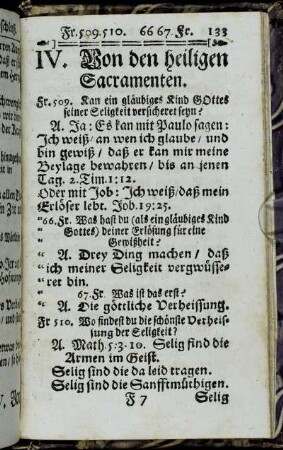 Fr. 509. 510. 66 67. Fr. 133
IV. Von den heiligen
Sacramenten.
Fr. 509. Kan ein gläubiges Kind GOttes
seiner Seligkeit versicheret seyn?
A. Ja: Es kan mit Paulo sagen:
Ich weiß/ an wen ich glaube/ und
bin gewiß/ daß er kan mir meine
Beylage bewahren/ bis an jenen
Tag. 2. Tim. 1:12.
Oder mit Job: Ich weiß/ daß mein
Erlöser lebt. Job. 19:25.
"66. Fr. Was hast du (als ein gläubiges Kind
" Gottes) deiner Erlösung für eine
" Gewißheit?
" A. Drey Ding machen/ daß
" ich meiner Seligkeit vergwüsse-
" rer bin.
" 67. Fr. Was ist das erst?
" A. Die göttliche Verheissung.
Fr 510. Wo findest du die schönste Verheis-
sung der Seligkeit?
A. Math 5:3-10. Selig sind die
Armen im Geist.
Selig sind die da leid tragen.
Selig sind die Sanfftmüthigen.
F 7 Selig